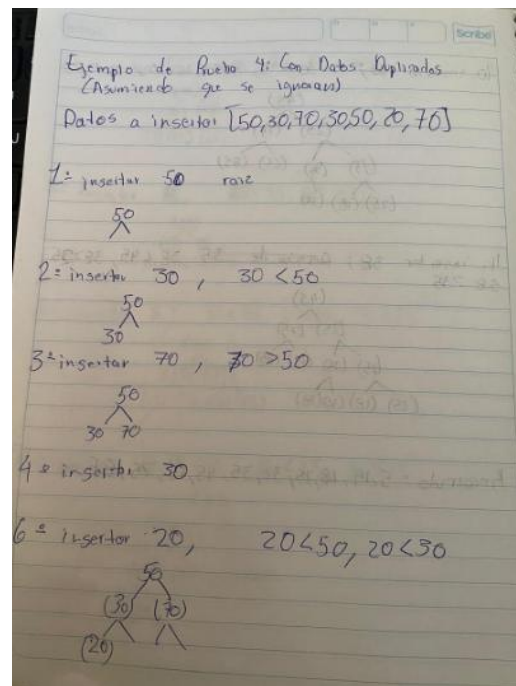 Scribe
Ejemplo de Prueba 4: Con Datos Duplicados
(Asumiendo que se ignoran)
Datos a insertar [50,30,70,30,50,20,70]
1= insertar 50 raiz
50
2= insertar 30, 30 <50
50
30
3= insertar 70, 70 >50
50
30 70
4= insertar 30
6= insertar 20, 20<50, 20<30
50
(30) (70)
(20)